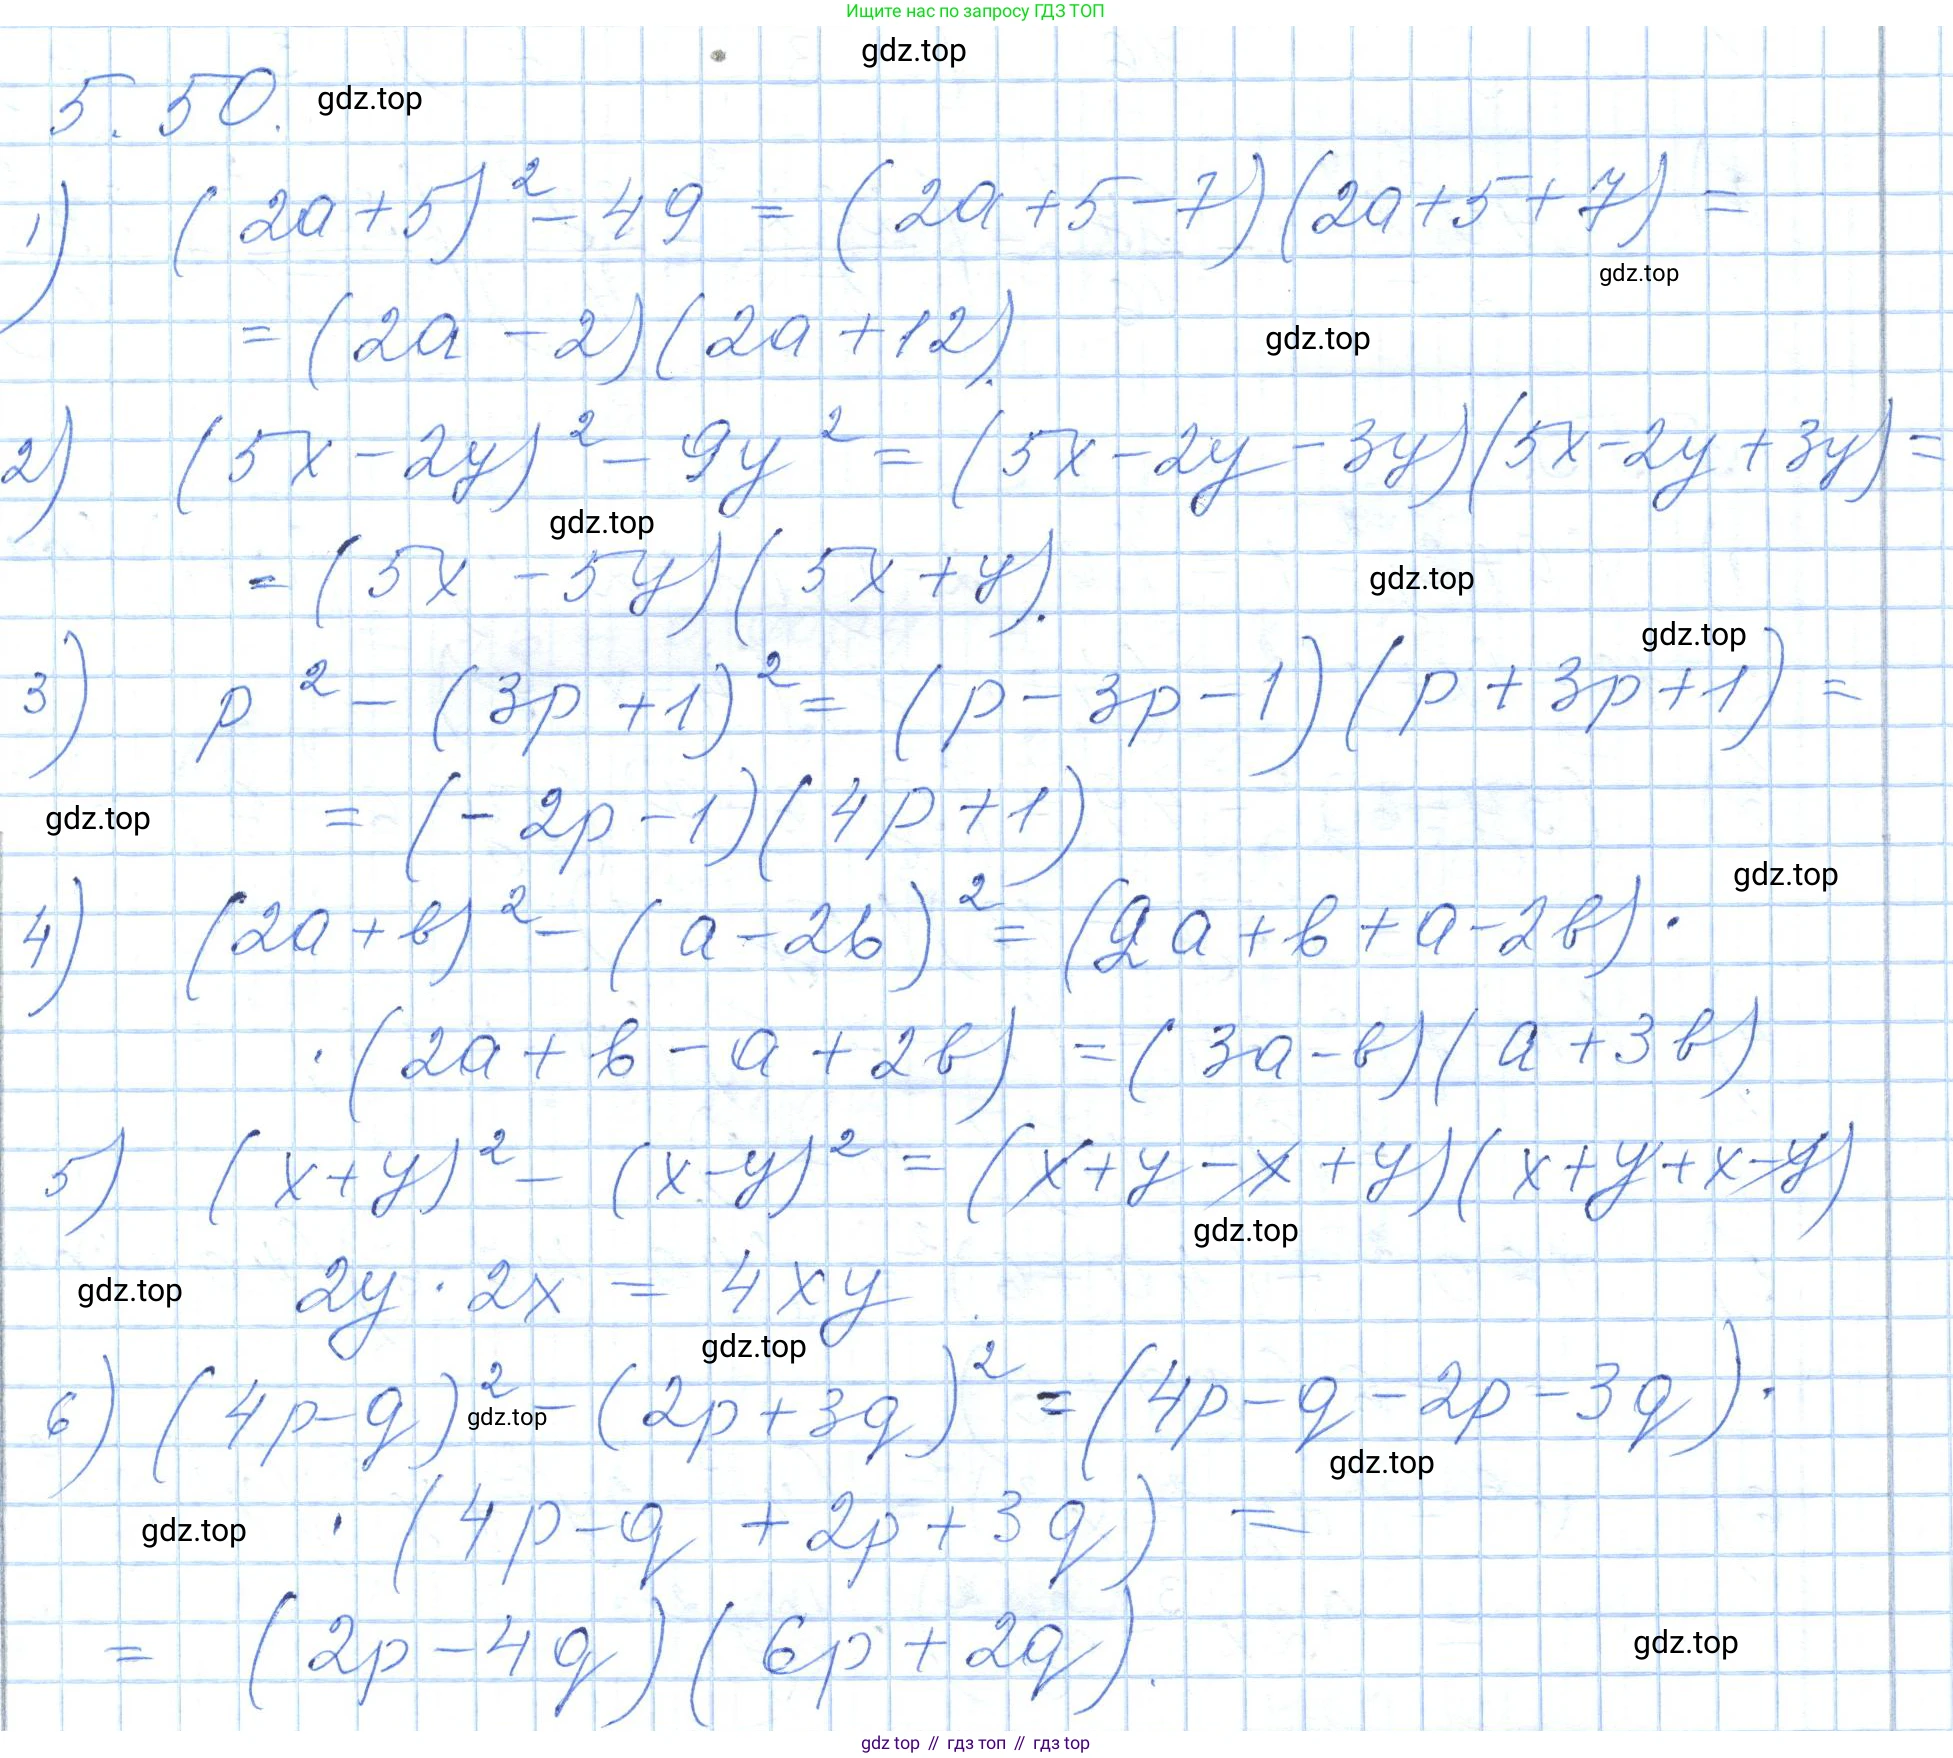 Ищите нас по запросу ГДЗ ТОП
gdz.top
5.50. gdz.top
1) (2a+5)² - 49 = (2a+5-7)(2a+5+7) =
gdz.top
= (2a-2)(2a+12). gdz.top
2) (5x-2y)² - 9y² = (5x-2y-3y)(5x-2y+3y) =
gdz.top
= (5x-5y)(5x+y). gdz.top
gdz.top
3) p² - (3p+1)² = (p-3p-1)(p+3p+1) =
gdz.top = (-2p-1)(4p+1)
gdz.top
4) (2a+b)² - (a-2b)² = (2a+b+a-2b)·
·(2a+b-a+2b) = (3a-b)(a+3b).
5) (x+y)² - (x-y)² = (x+y-x+y)(x+y+x-y)
gdz.top
gdz.top 2y · 2x = 4xy
gdz.top
6) (4p-q)² - (2p+3q)² = (4p-q-2p-3q)·
gdz.top
gdz.top
gdz.top ·(4p-q+2p+3q) =
= (2p-4q)(6p+2q). gdz.top
gdz top // гдз топ // гдз top